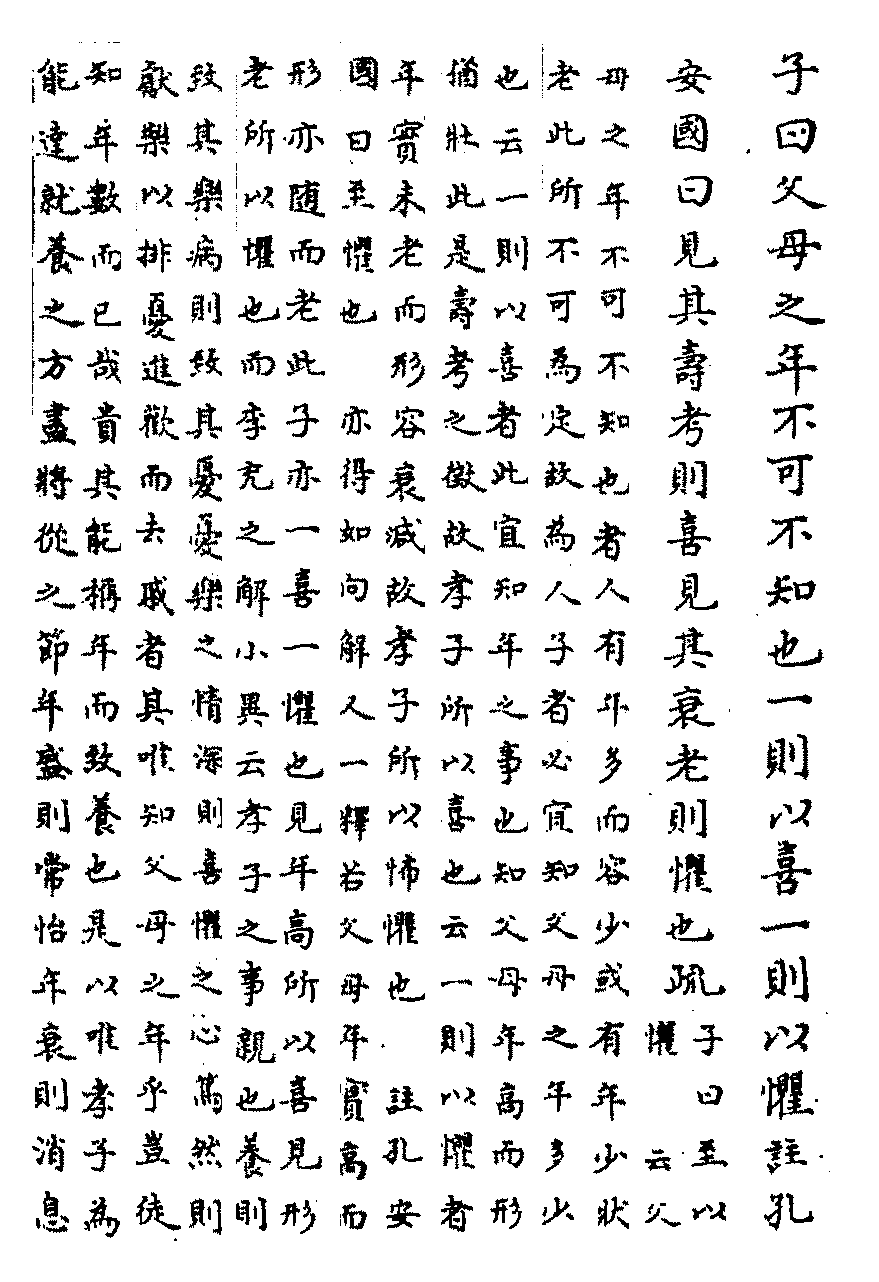 子曰父母之年不可不知也一則以喜一則以懼註孔
安國曰見其壽考則喜見其衰老則懼也疏子曰至以懼云父
母之年不可不知也者人有年多而容少或有年少狀
老此所不可為定故為人子者必宜知父母之年多少
也云一則以喜者此宜知年之事也知父母年高而形
猶壯此是壽考之徵故孝子所以喜也云一則以懼者
年實未老而形容衰减故孝子所以怖懼也 註孔安
國曰至懼也 亦得如向解又一釋若父母年實高而
形亦随而老此子亦一喜一懼也見年高所以喜見形
老所以懼也而李充之解小異云孝子之事親也養則
致其樂病則致其憂憂樂之情深則喜懼之心篤然則
獻樂以排憂進歡而去戚者其唯知父母之年乎豈徒
知年數而已哉貴其能稱年而致養也是以唯孝子為
能達就養之方盡將從之節年盛則常怡年衰則消息